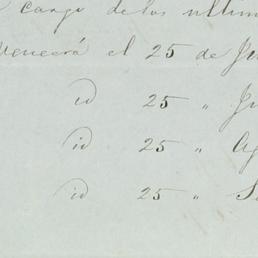 cargo de los ultim
Vencerá el 25 de Ju
id 25 " Ju
id 25 " Ag
id 25 " S